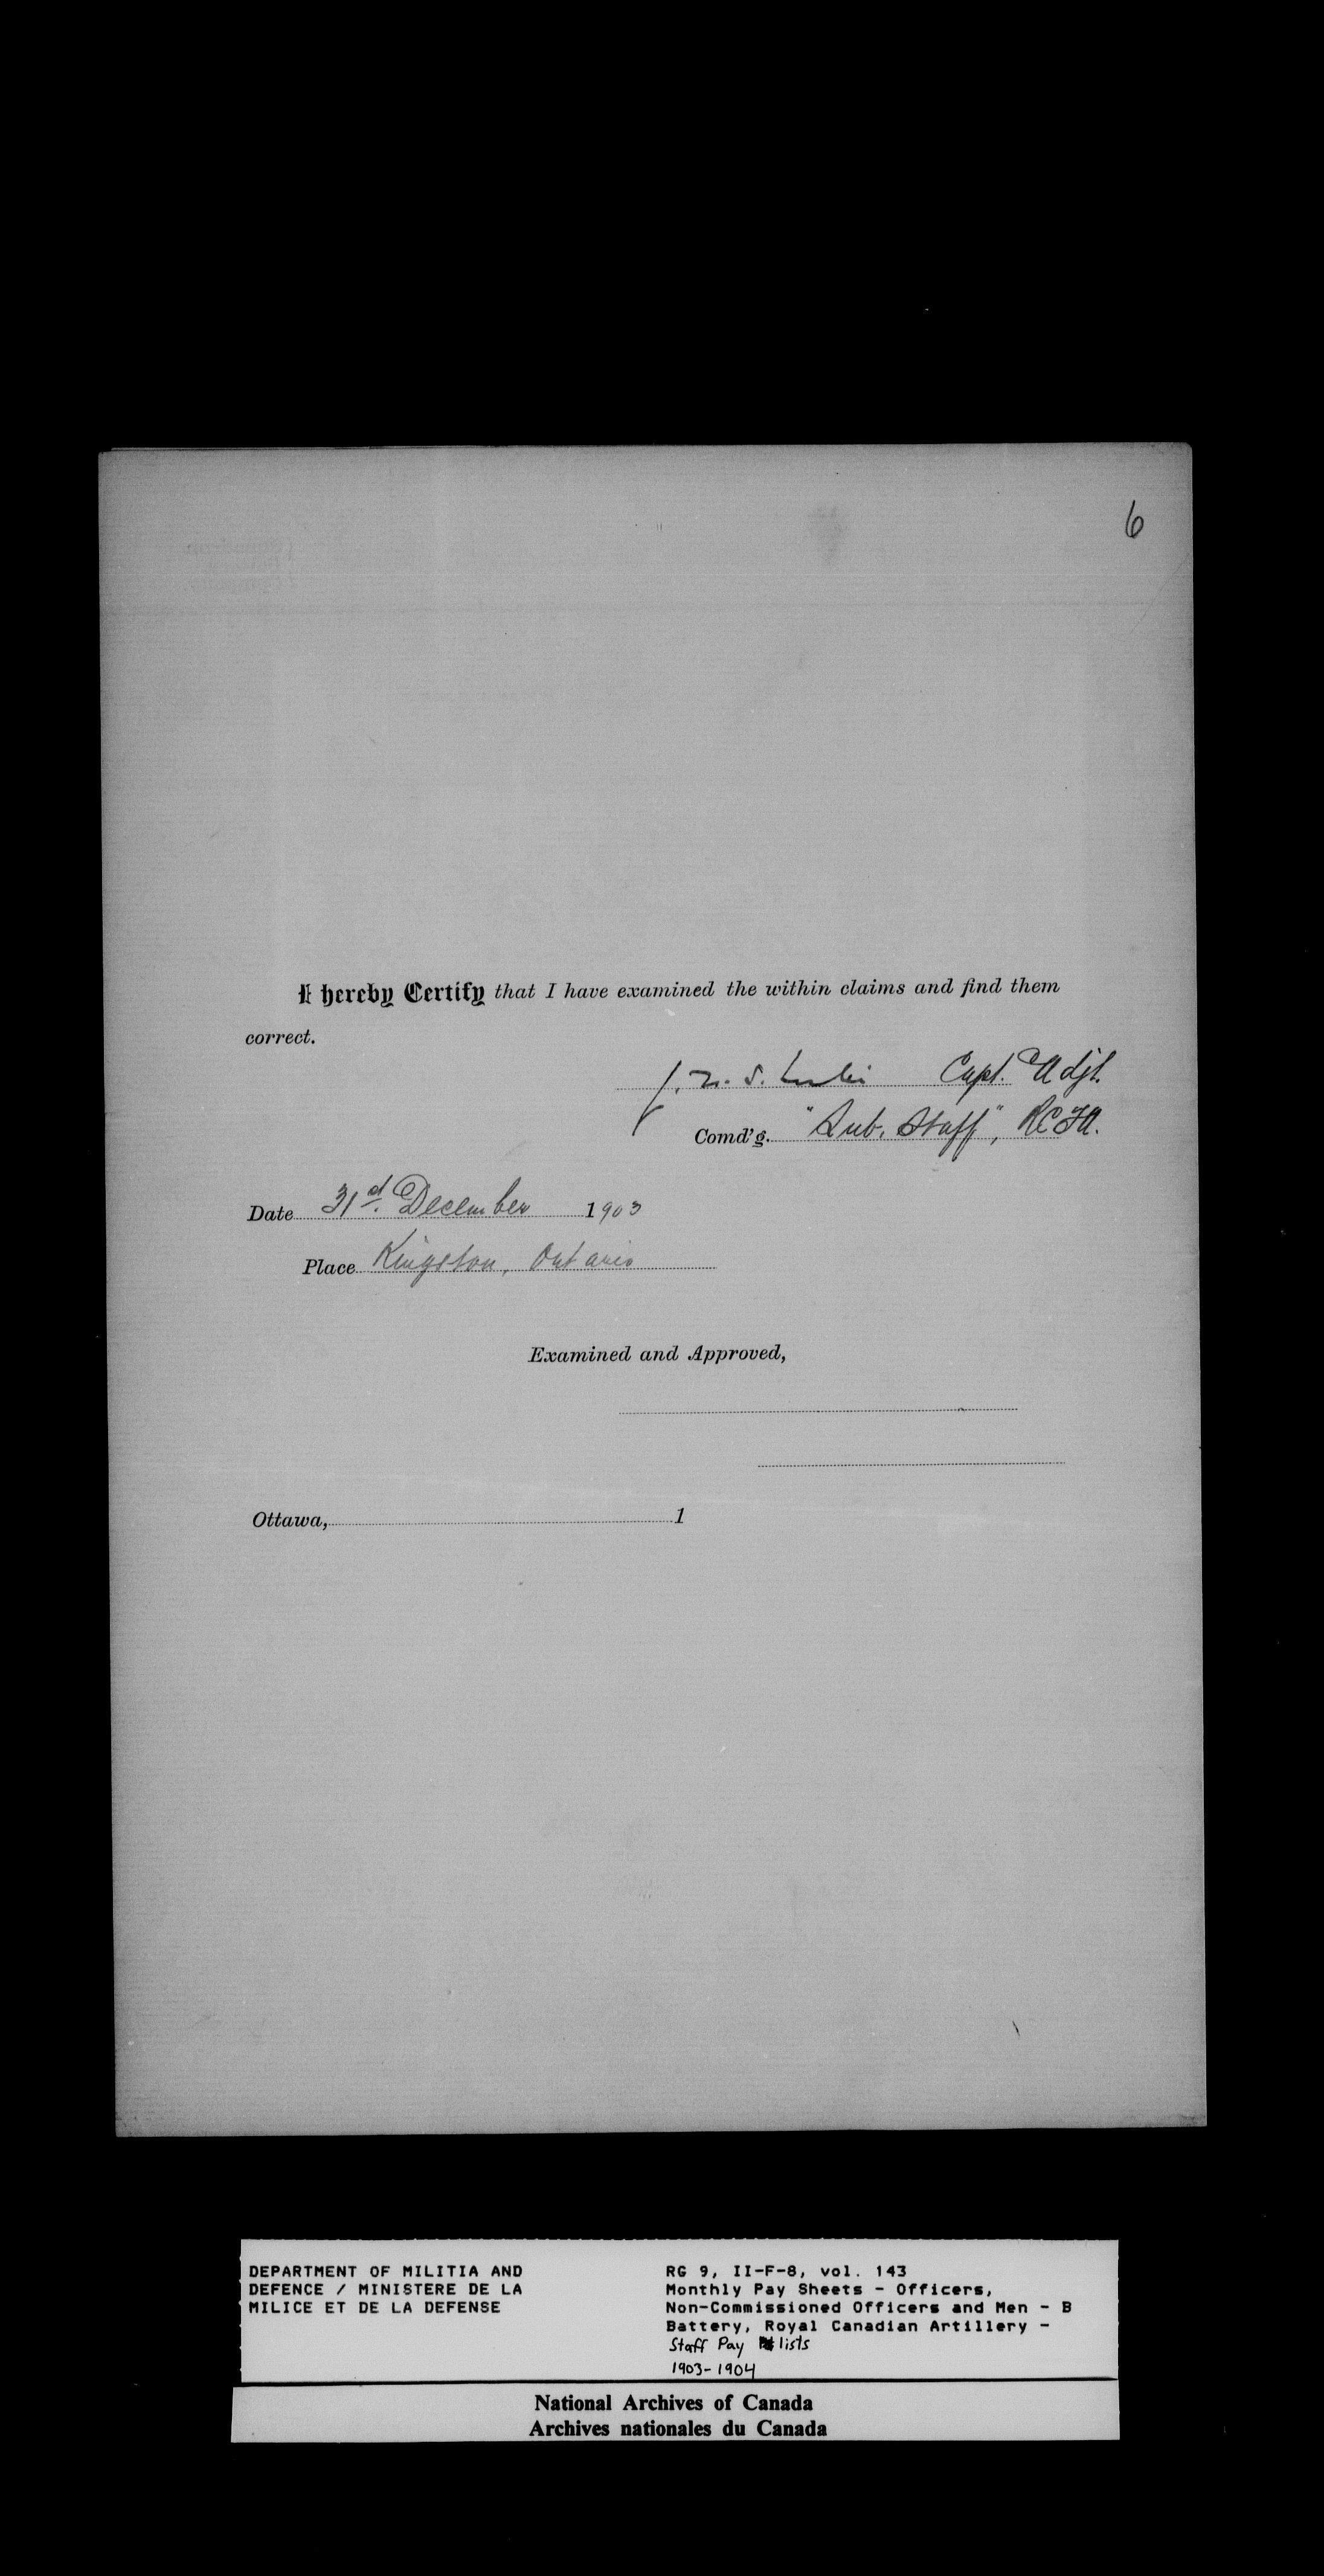 6
I hereby Certify that I have examined the within claims and find them
correct.
J. N. S. Leslie Capt. Adjt.
Comd'g. "Sub. Staff", RCFA.
Date 31d. December 1903
Place Kingston, Ontario
Examined and Approved,
Ottawa, 1
DEPARTMENT OF MILITIA AND
DEFENCE / MINISTERE DE LA
MILICE ET DE LA DEFENSE
RG 9, II-F-8, vol. 143
Monthly Pay Sheets - Officers,
Non-Commissioned Officers and Men - B
Battery, Royal Canadian Artillery -
Staff Pay lists
1903-1904
National Archives of Canada
Archives nationales du Canada